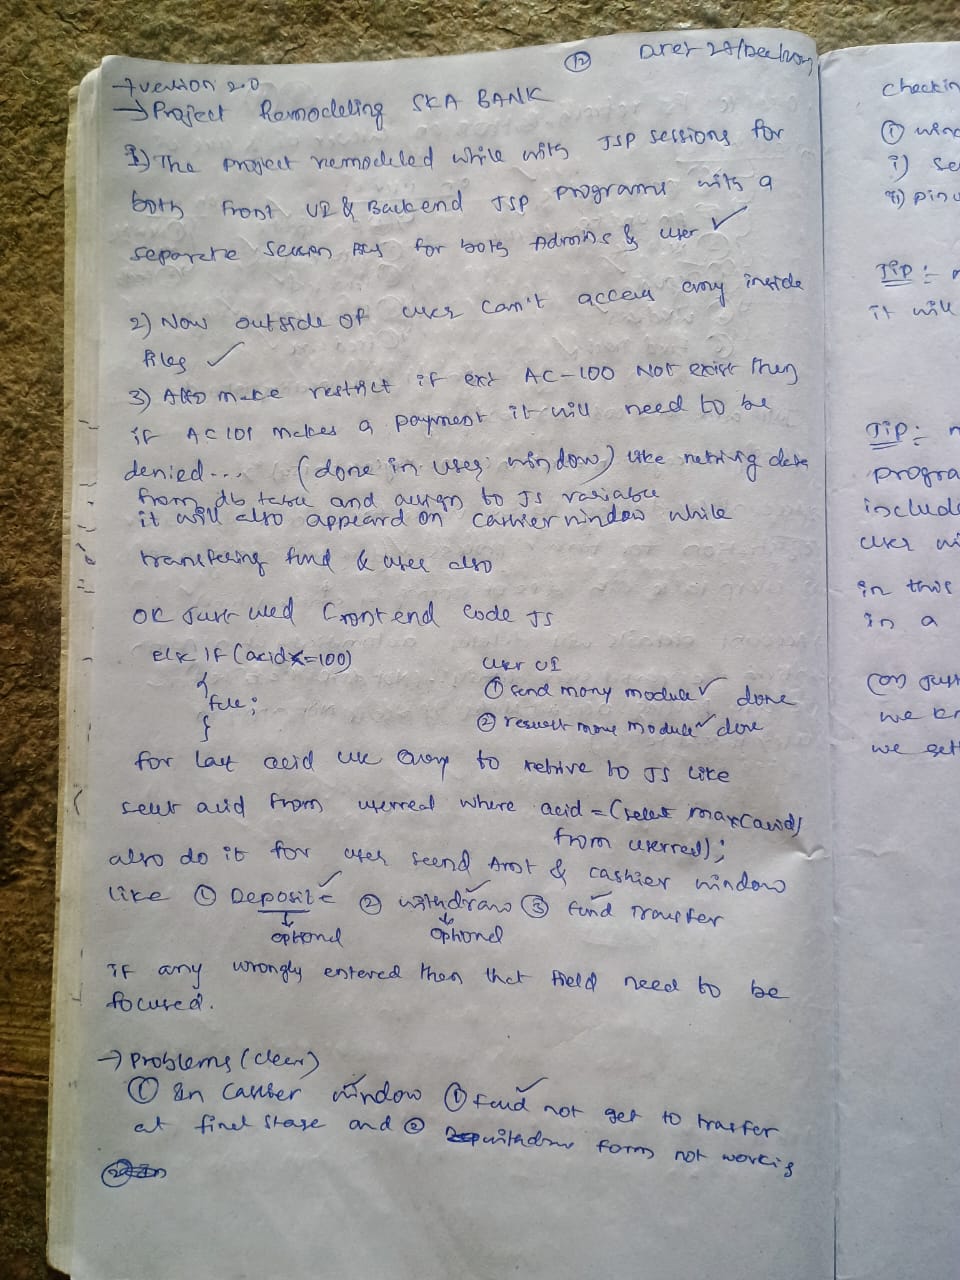 12
Date: 29/Dec/
→ version 2.0
→ Project Remodeling SKA BANK
1) The project remodeled while with JSP sessions for
both Front UI & Backend JSP programs with a
separate session for both Admins & user ✓
2) Now outside of user can't access any inside
files ✓
3) Also make restrict if ex: AC-100 Not exist then
if AC101 makes a payment it will need to be
denied... (done in user window) like retriving data
from db table and assign to JS variable
it will also appeard on cashier window while
transfering fund & user also
OR Just used Front end code JS
else if (acid<=100)
{
false;
}
user UI
① send mony module ✓ done
② request mone module ✓ done
for last acid we to retrive to JS like
select acid from userreal where acid = (select max(acid)
from userred);
also do it for user seend Amt & cashier window
like ① Deposit ✓ ② withdraw ✓ ③ fund Transfer ✓
↓ optional ↓ optional
if any wrongly entered then that field need to be
focused.
→ Problems (clear)
① In cashier window ✓ ① fund ✓ not get to trasfer
at final stage and ② withdraw form not workig
checkin
① wind
i) se
ii) pin
TIP :-
it will
TIP :-
progra
include
user wi
in this
in a
(on just
we
we gett